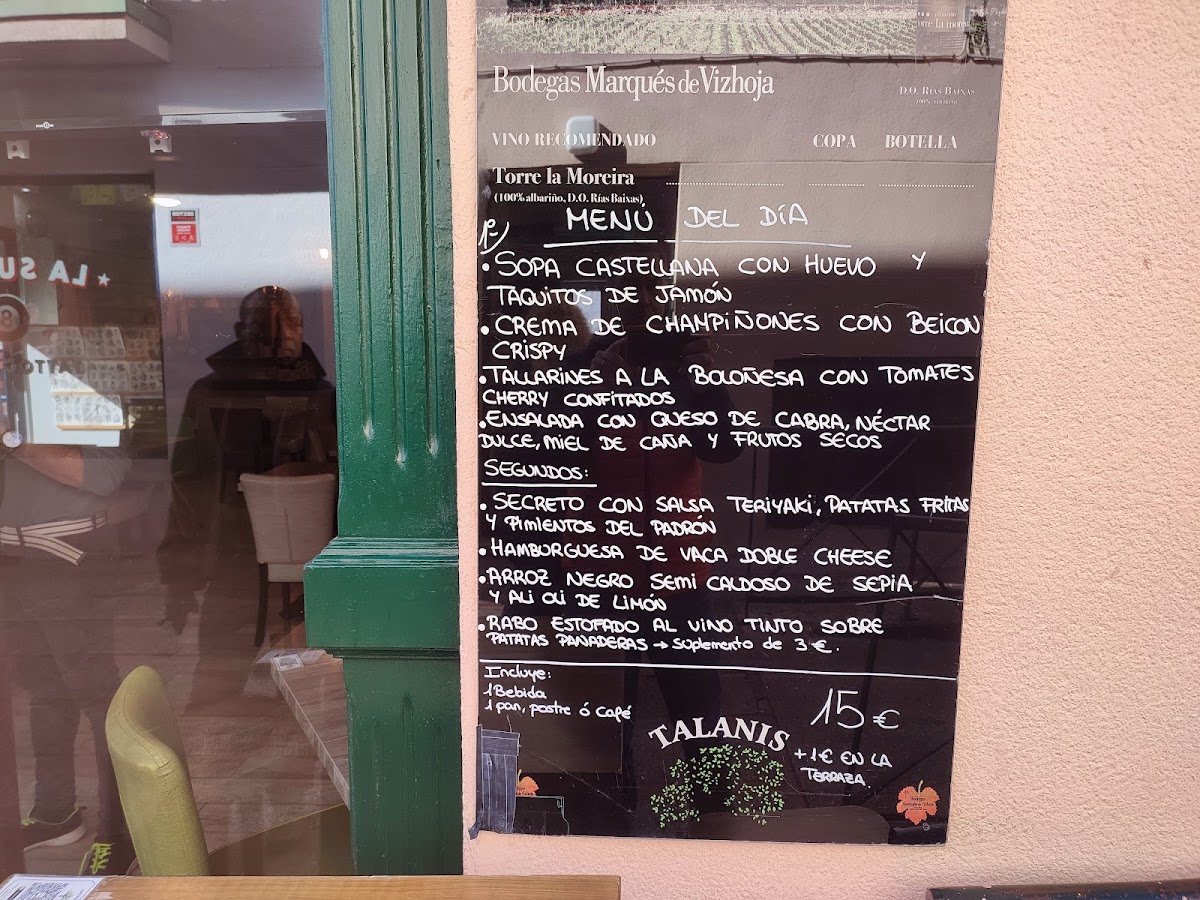 Bodegas Marqués de Vizhoja
D.O. RÍAS BAIXAS
100% ALBARIÑO
VINO RECOMENDADO COPA BOTELLA
Torre la Moreira
(100% albariño, D.O. Rías Baixas)
MENÚ DEL DÍA
1º-)
• SOPA CASTELLANA CON HUEVO Y
TAQUITOS DE JAMÓN
• CREMA DE CHAMPIÑONES CON BEICON
CRISPY
• TALLARINES A LA BOLOÑESA CON TOMATES
CHERRY CONFITADOS
• ENSALADA CON QUESO DE CABRA, NÉCTAR
DULCE, MIEL DE CAÑA Y FRUTOS SECOS
SEGUNDOS:
• SECRETO CON SALSA TERIYAKI, PATATAS FRITAS
Y PIMIENTOS DEL PADRÓN
• HAMBURGUESA DE VACA DOBLE CHEESE
• ARROZ NEGRO SEMI CALDOSO DE SEPIA
Y ALI OLI DE LIMÓN
• RABO ESTOFADO AL VINO TINTO SOBRE
PATATAS PANADERAS → Suplemento de 3 €.
Incluye:
1 Bebida
1 pan, postre ó café
15 €
+ 1 € EN LA
TERRAZA.
TALANIS
★ LA SU